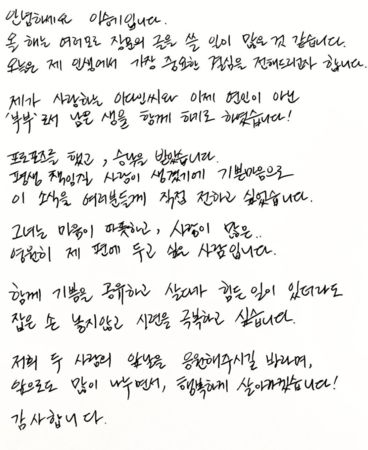 안녕하세요 이승기입니다.
올 해는 여러모로 장문의 글을 쓸 일이 많은 것 같습니다.
오늘은 제 인생에서 가장 중요한 결심을 전해드리고자 합니다.
제가 사랑하는 이다인씨와 이제 연인이 아닌
'부부'로서 남은 생을 함께 하기로 하였습니다!
프로포즈를 했고, 승낙을 받았습니다.
평생 책임질 사람이 생겼기에 기쁜마음으로
이 소식을 여러분들께 직접 전하고 싶었습니다.
그녀는 마음이 따뜻하고, 사랑이 많은..
영원히 제 편에 두고 싶은 사람입니다.
함께 기쁨을 공유하고 살다가 힘든 일이 있더라도
잡은 손 놓지않고 시련을 극복하고 싶습니다.
저희 두 사람의 앞날을 응원해주시길 바라며,
앞으로도 많이 나누면서, 행복하게 살아가겠습니다!
감사합니다.